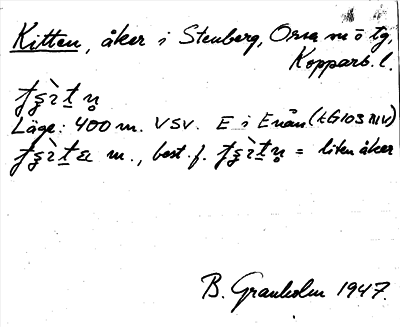 Kitten, åker i Stenberg, Orsa m o tg,
Kopparb. l.
Läge: 400 m. VSV. E i Enån (
m., best. f. = liten åker
B. Granholm 1947.